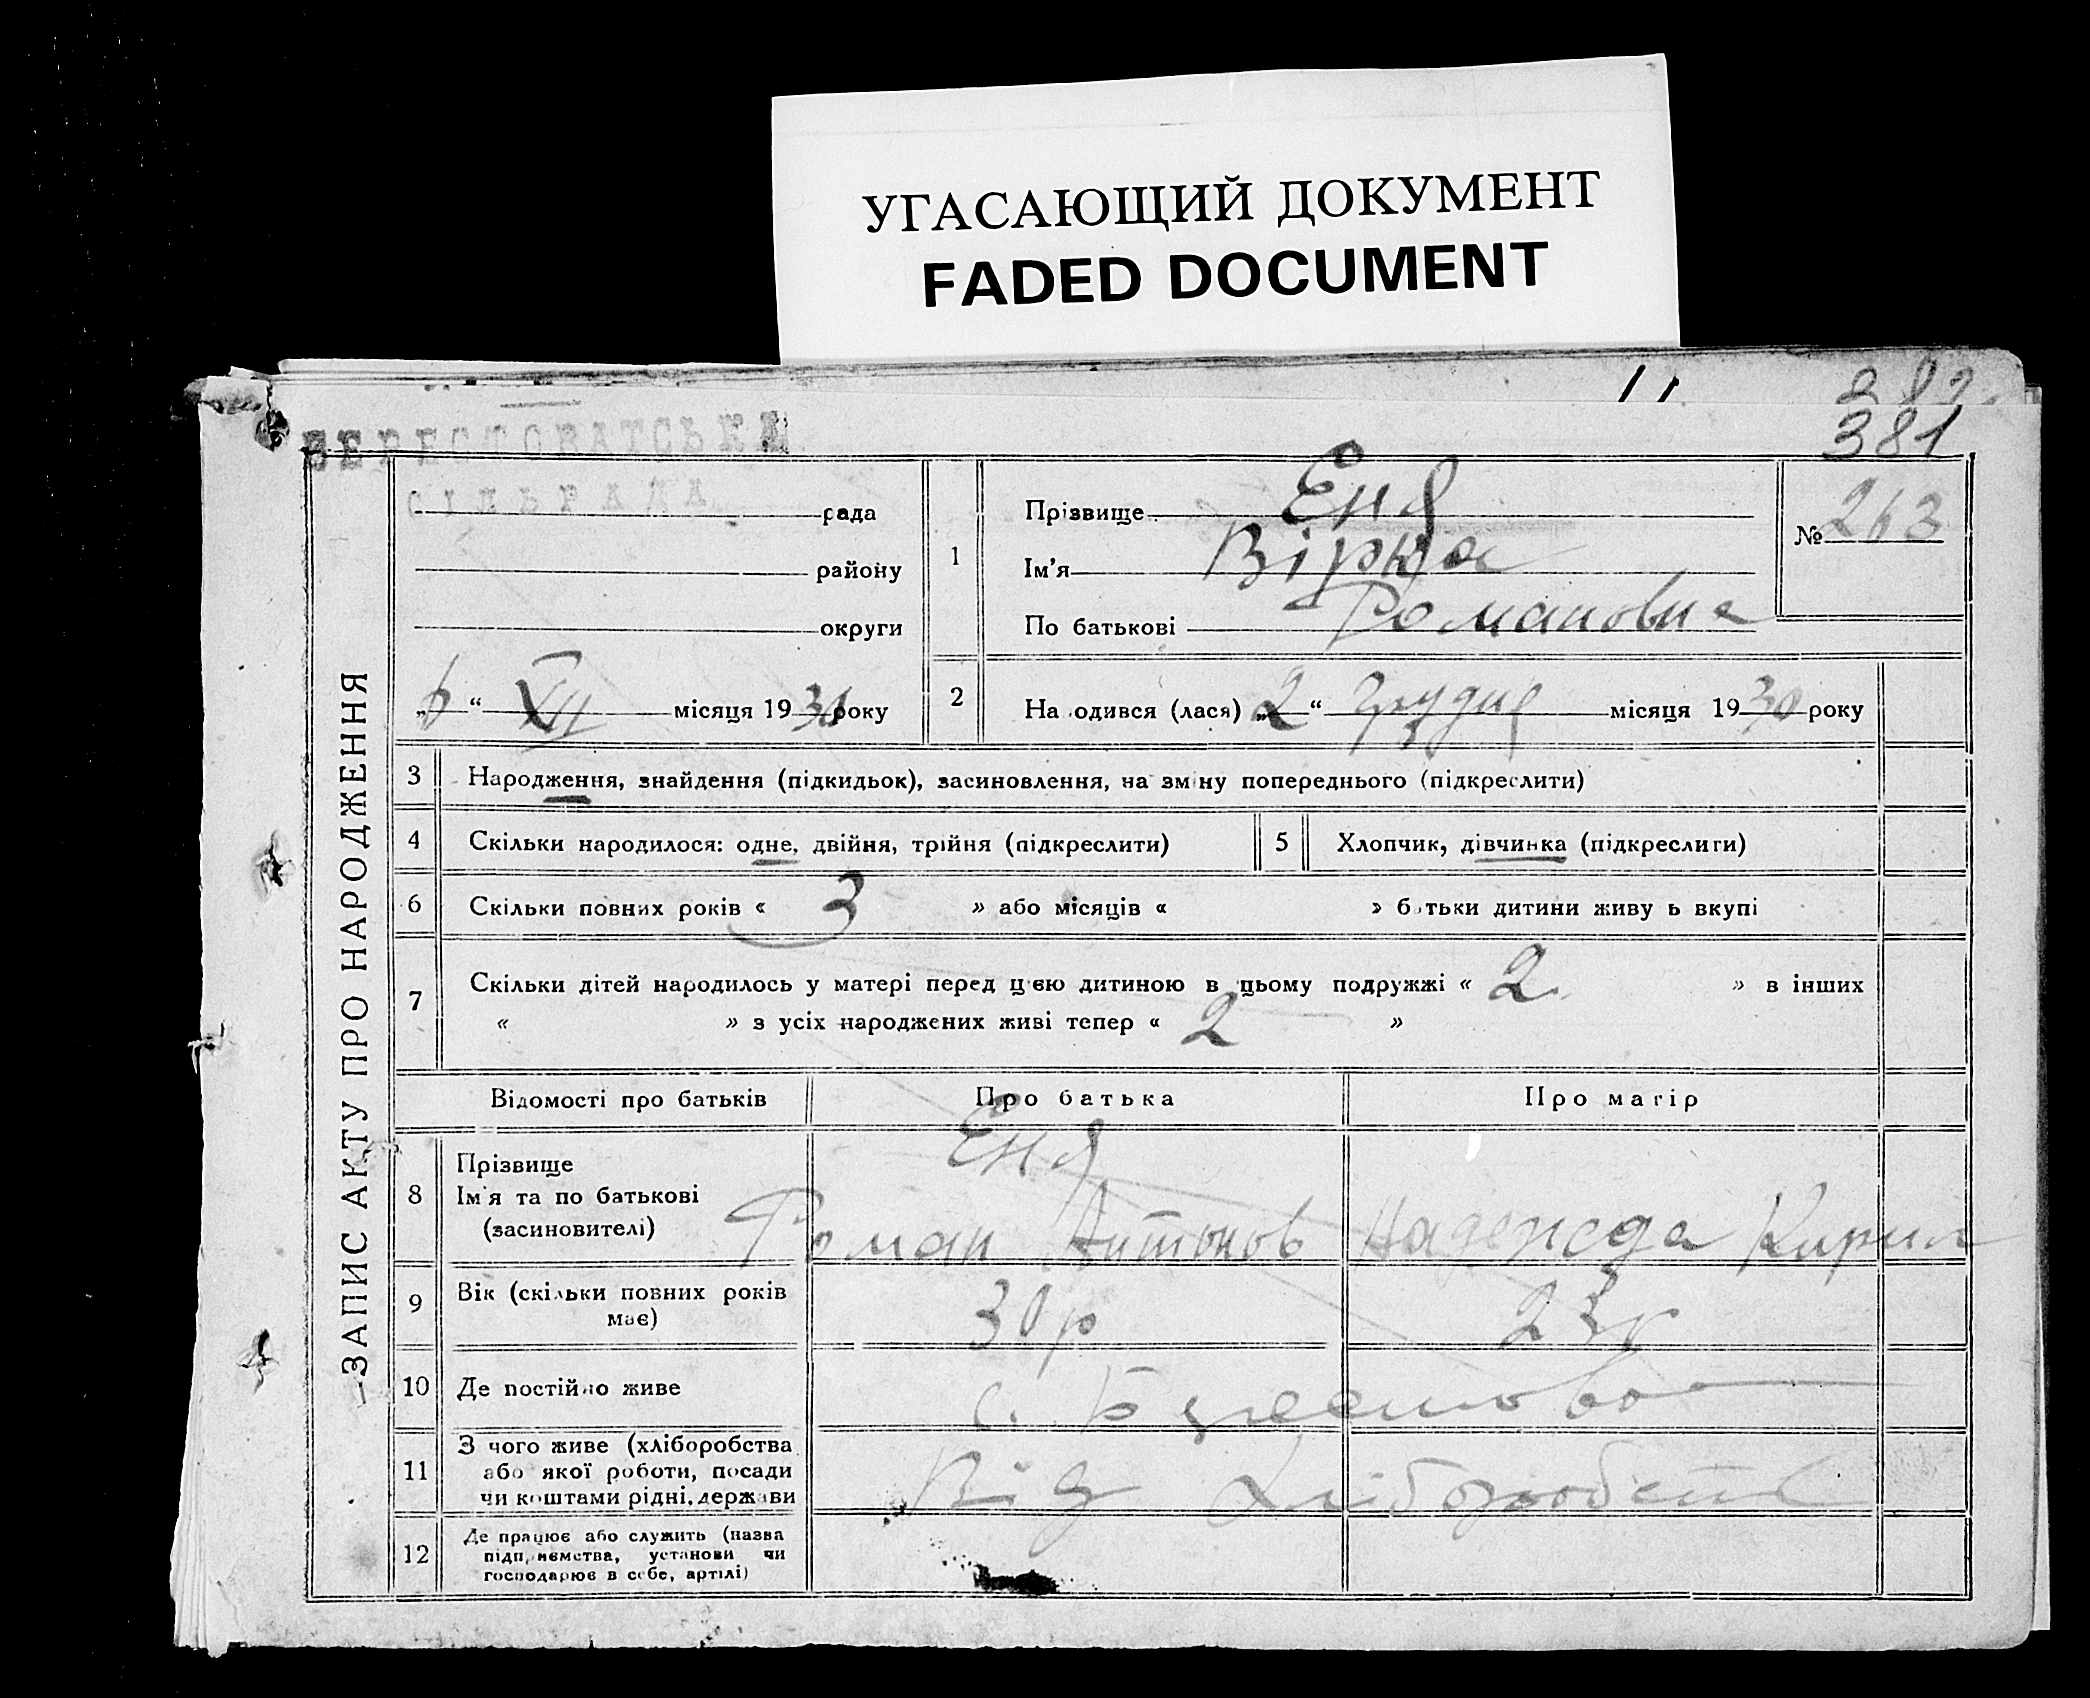 УГАСАЮЩИЙ ДОКУМЕНТ
FADED DOCUMENT
382
381
БЕРЕСТОВАТСЬКА
СІЛЬРАДА
рада
району
округи
„6“ XII місяця 1930 року
ЗАПИС АКТУ ПРО НАРОДЖЕННЯ
1 Прізвище Еня
Ім'я Вірка
По батькові Романовна
№ 263
2 На одився (лася) „2“ Грудня місяця 1930 року
3 Народження, знайдення (підкидьок), засиновлення, на зміну попереднього (підкреслити)
4 Скільки народилося: одне, двійня, трійня (підкреслити) 5 Хлопчик, дівчинка (підкреслити)
6 Скільки повних років « 3 » або місяців « » батьки дитини живу ь вкупі
7 Скільки дітей народилось у матері перед цією дитиною в цьому подружжі « 2 » в інших
« » з усіх народжених живі тепер « 2 »
Відомості про батьків Про батька Про матір
8 Прізвище
Ім'я та по батькові
(засиновителі)
Еня
Роман Антонов Надежда Кирил
9 Вік (скільки повних років
має)
30р 23р
10 Де постійно живе
с.
11 З чого живе (хліборобства
або якої роботи, посади
чи коштами рідні, держави
Від Хліборобств
12 Де працює або служить (назва
підприємства, установи чи
господарює в себе, артілі)